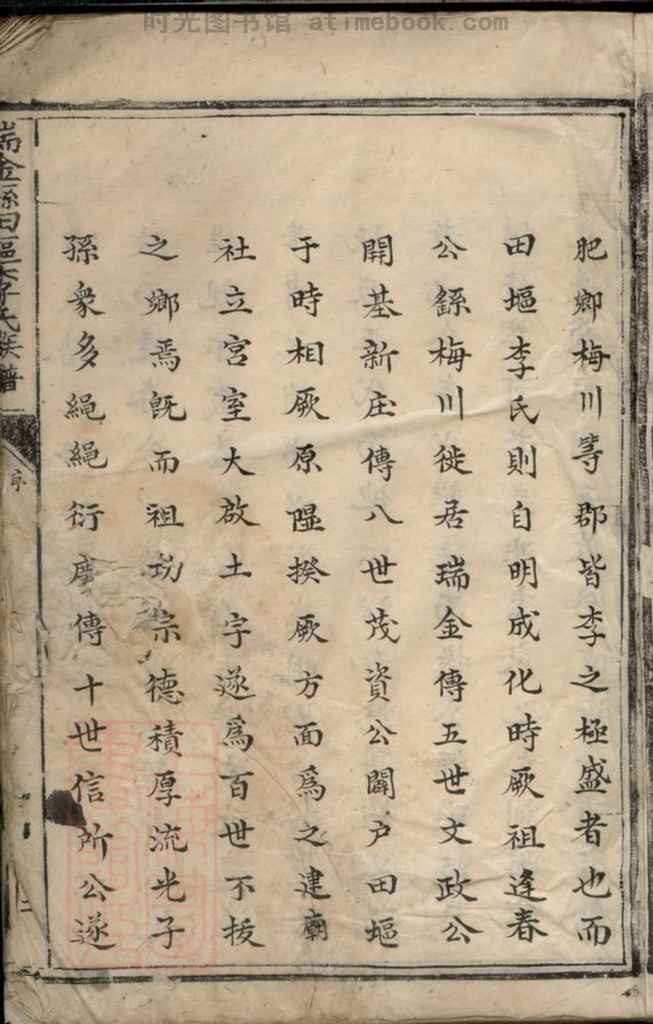 时光图书馆 atimebook.com
肥鄉梅川等郡皆李之極盛者也而
田塸李氏則自明成化時厥祖逢春
公繇梅川徙居瑞金傳五世文政公
開基新庄傳八世茂資公闢戶田塸
于時相厥原隰揆厥方面爲之建廟
社立宮室大啟土宇遂爲百世不拔
之鄉焉既而祖功宗德積厚流光子
孫衆多繩繩衍慶傳十世信所公遂
瑞金縣田塸李氏族譜
序
二